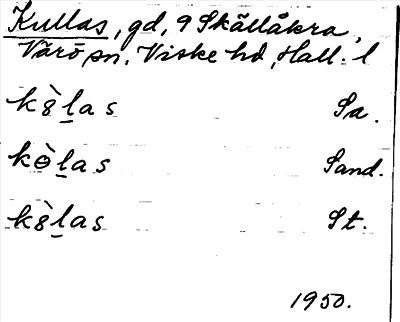 Kullas, gd, 9 Skällåkra,
Värö sn. Viske hd, Hall. l
k8̀l̲as Sa.
kɵ̀l̲as Sand.
k8̀l̲as St.
1950.